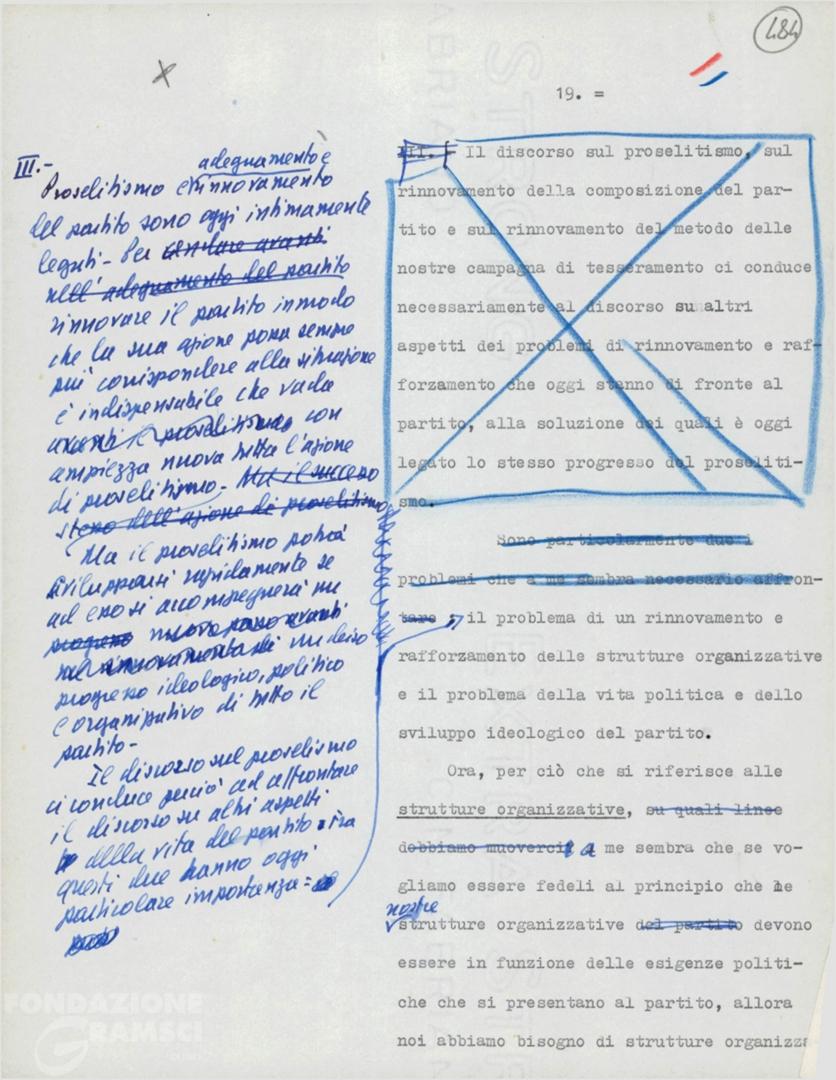 484
19. =
III.-
adeguamento e
Proselitismo e rinnovamento
del partito sono oggi intimamente
legati - Per andare avanti
nell'adeguamento del partito
rinnovare il partito in modo
che la sua azione possa sempre
più corrispondere alla situazione
è indispensabile che vada
avanti il proselitismo con
ampiezza nuova tutta l'azione
di proselitismo - Ma il successo
stesso dell'azione di proselitismo
Ma il proselitismo potrà
svilupparsi rapidamente se
ad esso si accompagnerà un
progresso nuovo passo avanti
nel rinnovamento di un deciso
progresso ideologico, politico
e organizzativo di tutto il
partito -
Il discorso sul proselitismo
ci conduce perciò ad affrontare
il discorso su altri aspetti
della vita del partito : tra
questi due hanno oggi
particolare importanza :
III. - Il discorso sul proselitismo, sul
rinnovamento della composizione del par-
tito e sul rinnovamento del metodo delle
nostre campagna di tesseramento ci conduce
necessariamente al discorso su altri
aspetti dei problemi di rinnovamento e raf-
forzamento che oggi stanno di fronte al
partito, alla soluzione dei quali è oggi
legato lo stesso progresso del proseliti-
smo.
Sono particolarmente due i
problemi che a me sembra necessario affron-
tare : il problema di un rinnovamento e
rafforzamento delle strutture organizzative
e il problema della vita politica e dello
sviluppo ideologico del partito.
Ora, per ciò che si riferisce alle
strutture organizzative, su quali linee
dobbiamo muoverci a me sembra che se vo-
gliamo essere fedeli al principio che le
nostre
strutture organizzative del partito devono
essere in funzione delle esigenze politi-
che che si presentano al partito, allora
noi abbiamo bisogno di strutture organizza
FONDAZIONE
GRAMSCI